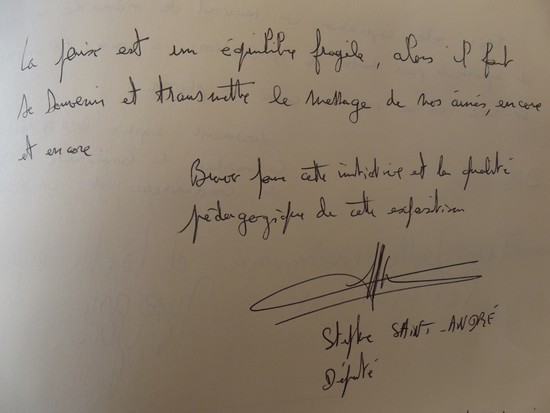 La paix est un équilibre fragile, alors il faut
se souvenir et transmettre le message de nos aînés, encore
et encore
Bravo pour cette initiative et la qualité
pédagogique de cette exposition
Stéphane SAINT-ANDRÉ
Député